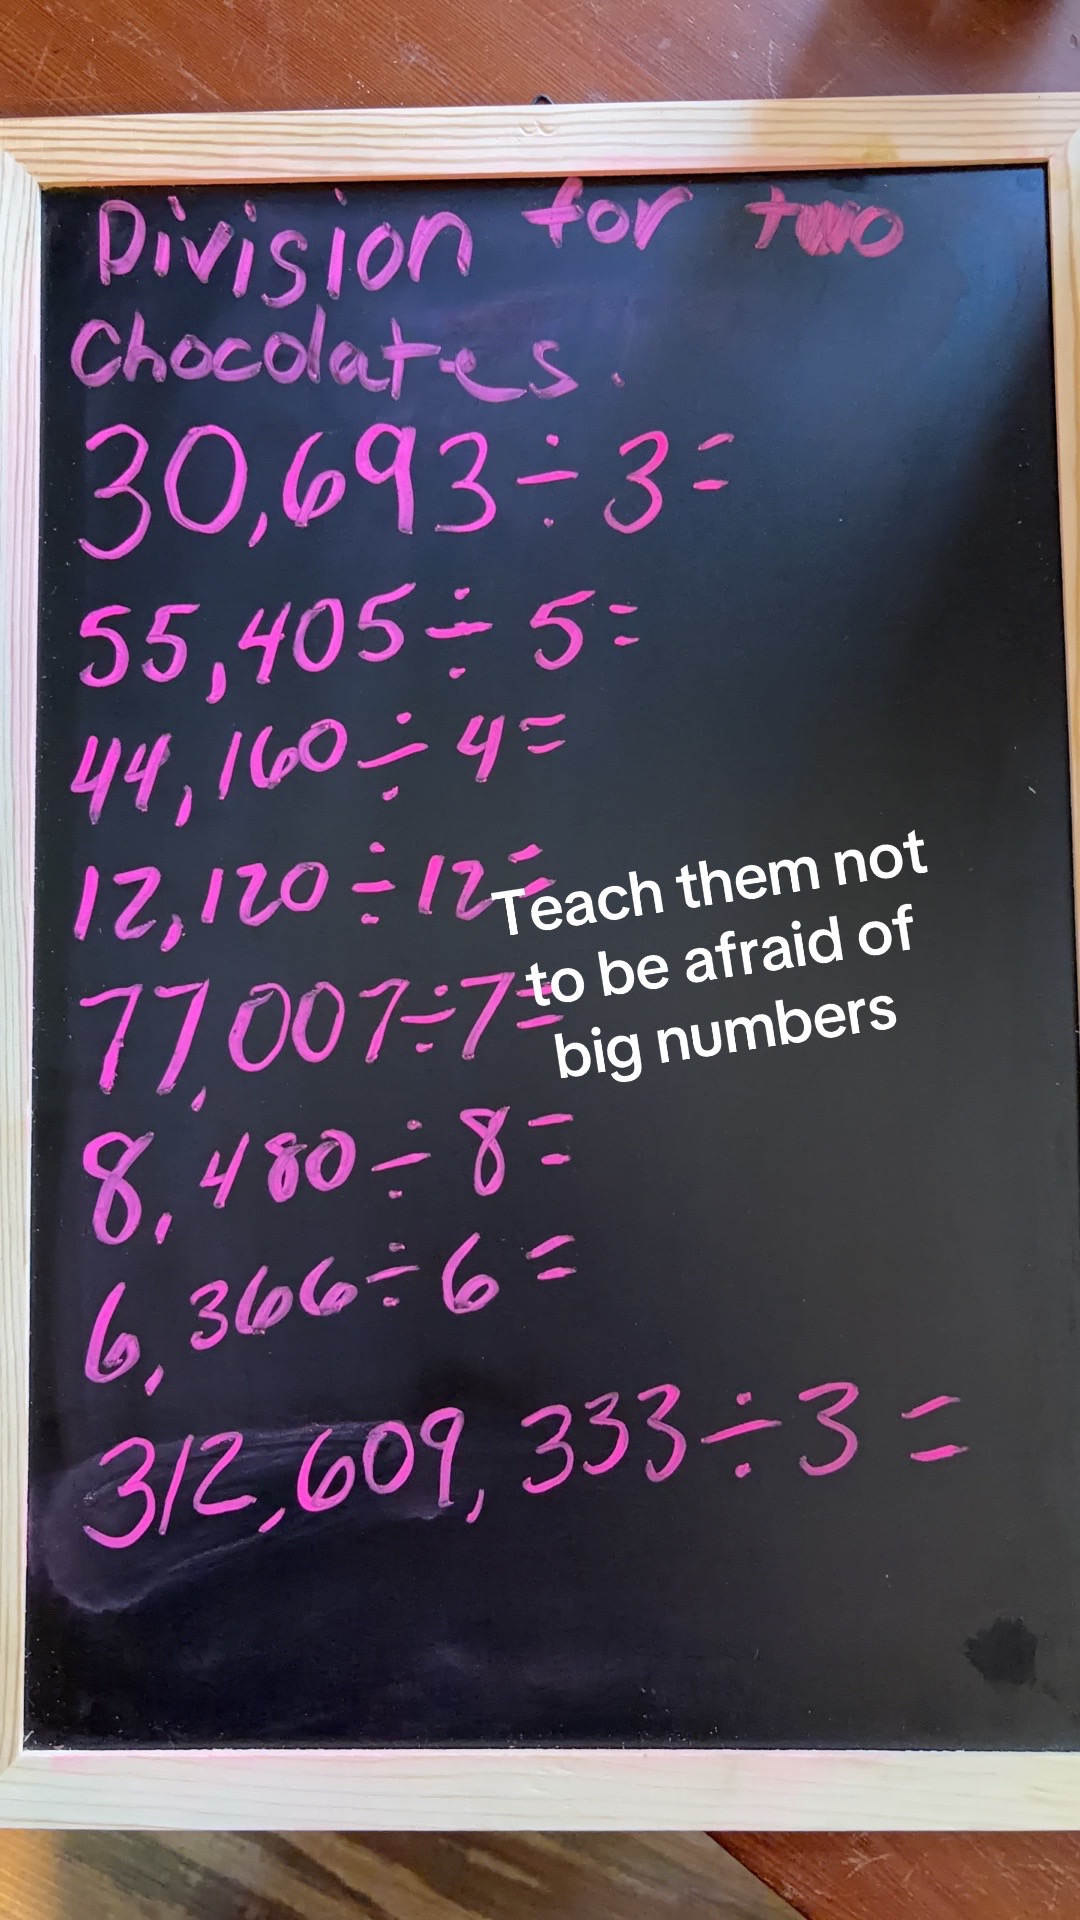 Division for two
chocolates.
30,693÷3=
55,405÷5=
44,160÷4=
12,120÷12=
77,007÷7=
8,480÷8=
6,366÷6=
312,609,333÷3=
Teach them not
to be afraid of
big numbers